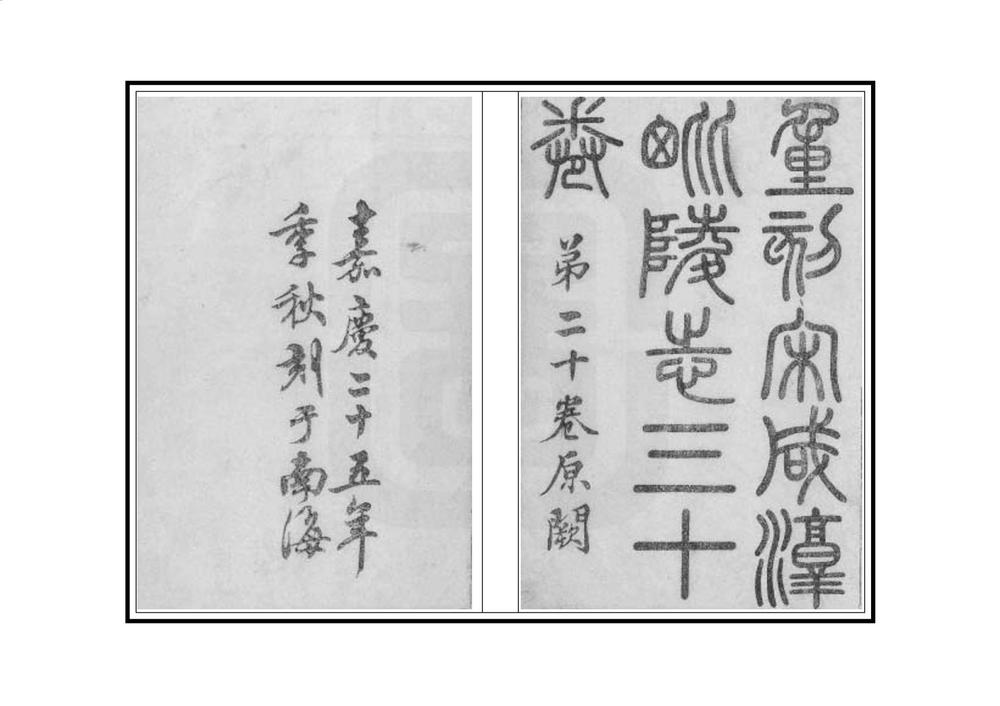 重刻宋咸淳
毗陵志三十
卷
弟二十卷原闕
嘉慶二十五年
季秋刻于南海